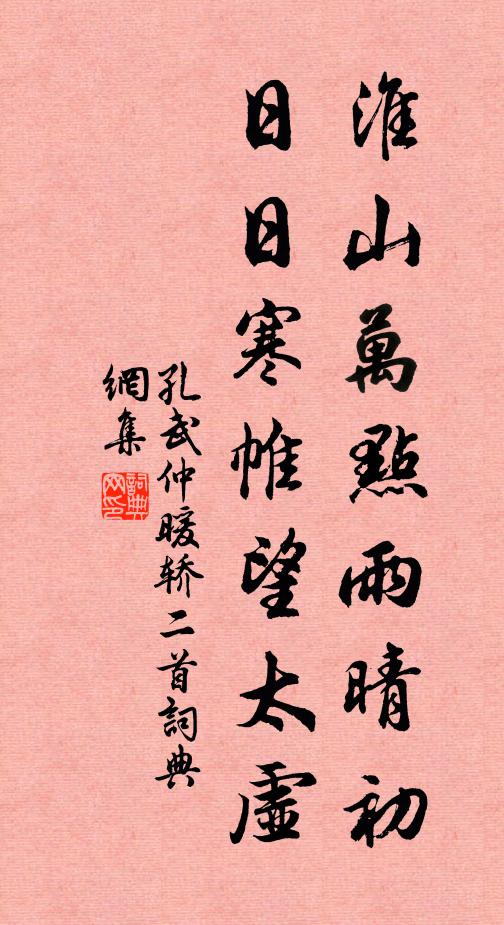 淮山萬點雨晴初
日日寒帷望太虛
孔武仲暖轿二首詞典
網集
詞典网印